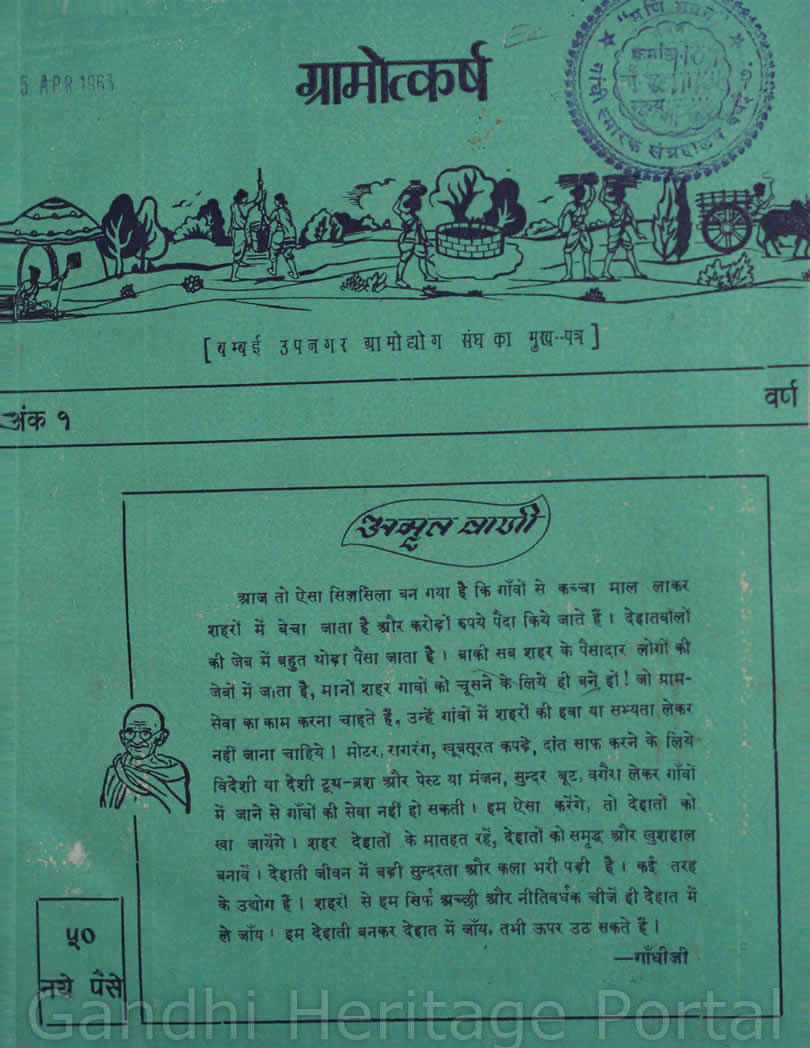 5 APR 1963
ग्रामोत्कर्ष
"मणि भवन"
गांधी स्मारक संग्रहालय
[ बम्बई उपनगर ग्रामोद्योग संघ का मुख--पत्र ]
अंक १
वर्ष
अमृत वाणी
आज तो ऐसा सिलसिला बन गया है कि गाँवों से कच्चा माल लाकर
शहरों में बेचा जाता है और करोड़ों रुपये पैदा किये जाते हैं । देहातवालों
की जेब में बहुत थोड़ा पैसा जाता है । बाकी सब शहर के पैसादार लोगों की
जेबों में जाता है, मानों शहर गावों को चूसने के लिये ही बने हों ! जो ग्राम-
सेवा का काम करना चाहते हैं, उन्हें गांवों में शहरों की हवा या सभ्यता लेकर
नहीं जाना चाहिये । मोटर, रागरंग, खूबसूरत कपड़े, दांत साफ करने के लिये
विदेशी या देशी टूथ-ब्रश और पेस्ट या मंजन, सुन्दर बूट, वगैरा लेकर गाँवों
में जाने से गाँवों की सेवा नहीं हो सकती । हम ऐसा करेंगे, तो देहातों को
खा जायेंगे । शहर देहातों के मातहत रहें, देहातों को समृद्ध और खुशहाल
बनावें । देहाती जीवन में बड़ी सुन्दरता और कला भरी पड़ी है । कई तरह
के उद्योग हैं । शहरों से हम सिर्फ अच्छी और नीतिवर्धक चीजें ही देहात में
ले जाँय । हम देहाती बनकर देहात में जाँय, तभी ऊपर उठ सकते हैं ।
—गाँधीजी
५०
नये पैसे
Gandhi Heritage Portal